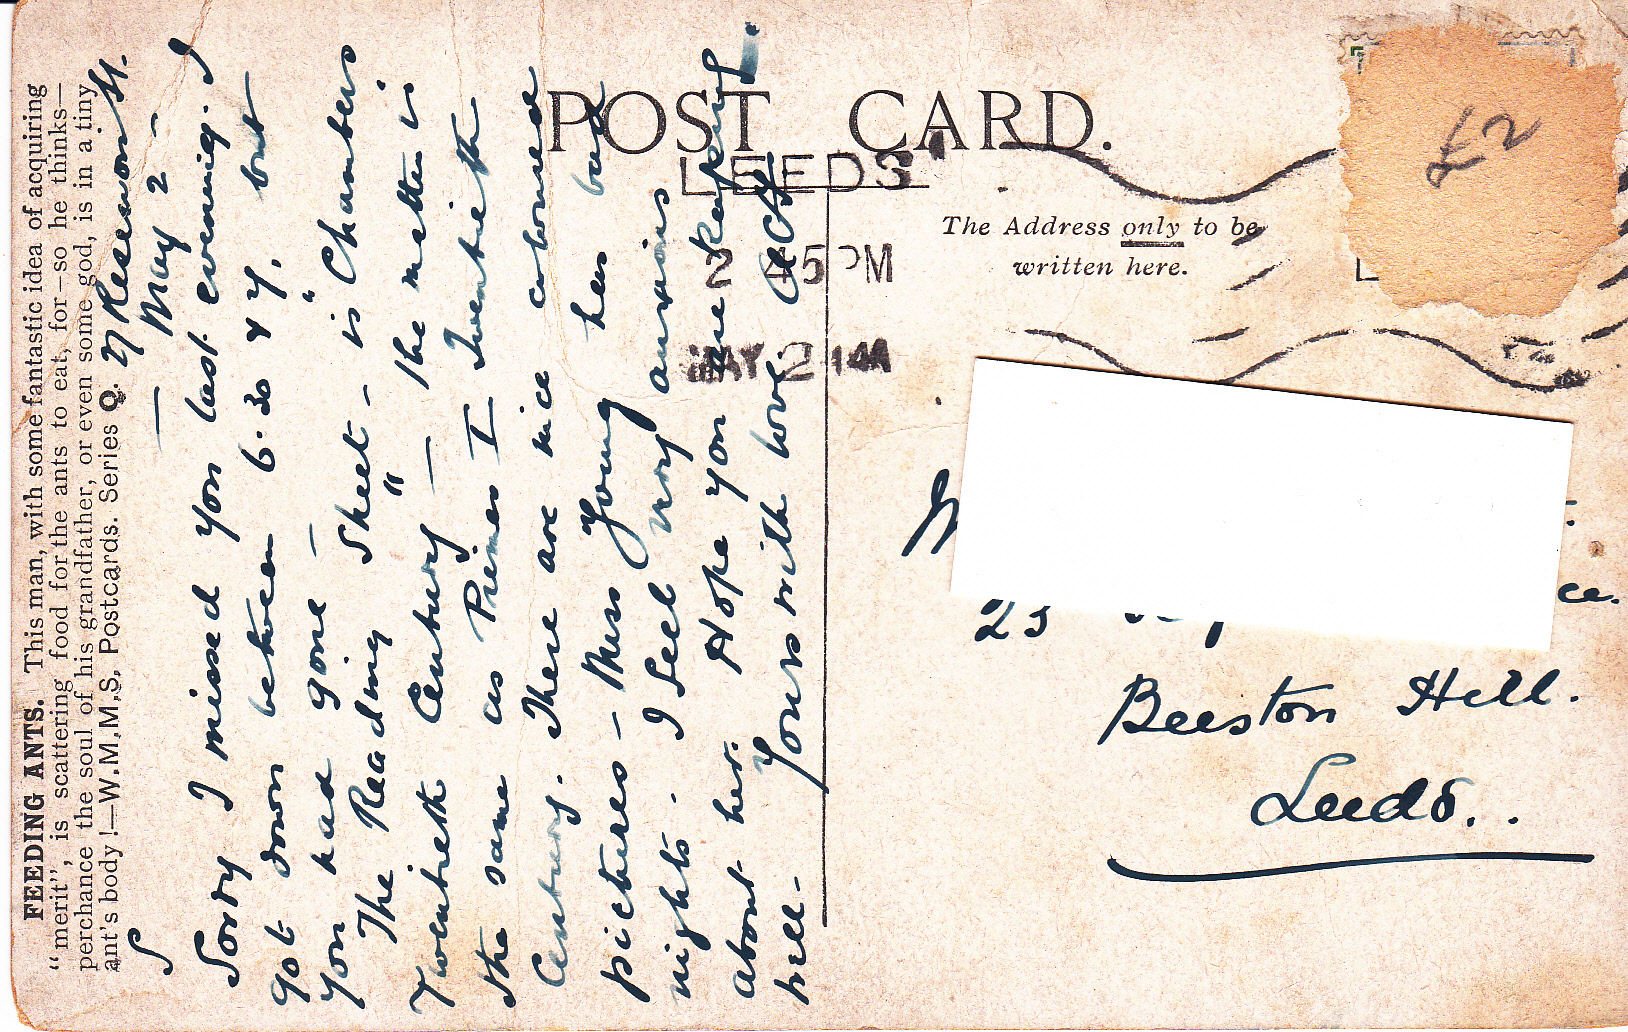 FEEDING ANTS. This man, with some fantastic idea of acquiring
"merit", is scattering food for the ants to eat, for—so he thinks—
perchance the soul of his grandfather, or even some god, is in a tiny
ant's body!—W.M.M.S. Postcards. Series O.
27 Rosemont St.
— May 2 –
Sorry I missed you last evening. I
got down between 6.30 & 7, but
you had gone –
The Reading Sheet – is "Chambers
Twentieth Century" – the matter is
the same as Primer I Twentieth
Century. There are nice coloured
pictures – Miss Young has bad
nights. I feel very anxious
about her. Hope you are keeping
well –
Yours with love
POST CARD.
The Address only to be
written here.
LEEDS
2 45 PM
MAY 2 14
£2
23
Beeston Hill.
Leeds..